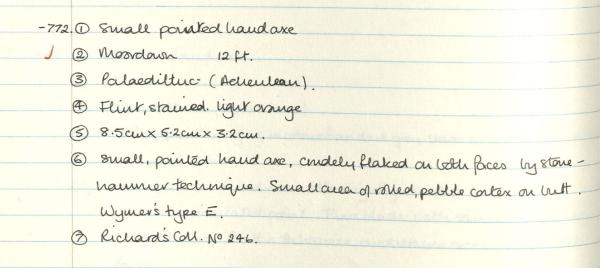 -772. ① Small pointed hand axe
② Moordown 12 ft.
③ Palaeolithic (Acheulean).
④ Flint, stained. light orange
⑤ 8.5cm x 6.2cm x 3.2cm.
⑥ Small, pointed hand axe, crudely flaked on both faces by stone-
hammer technique. Small area of rolled, pebble cortex on butt.
Wymer's type E.
⑦ Richard's Coll. No 246.